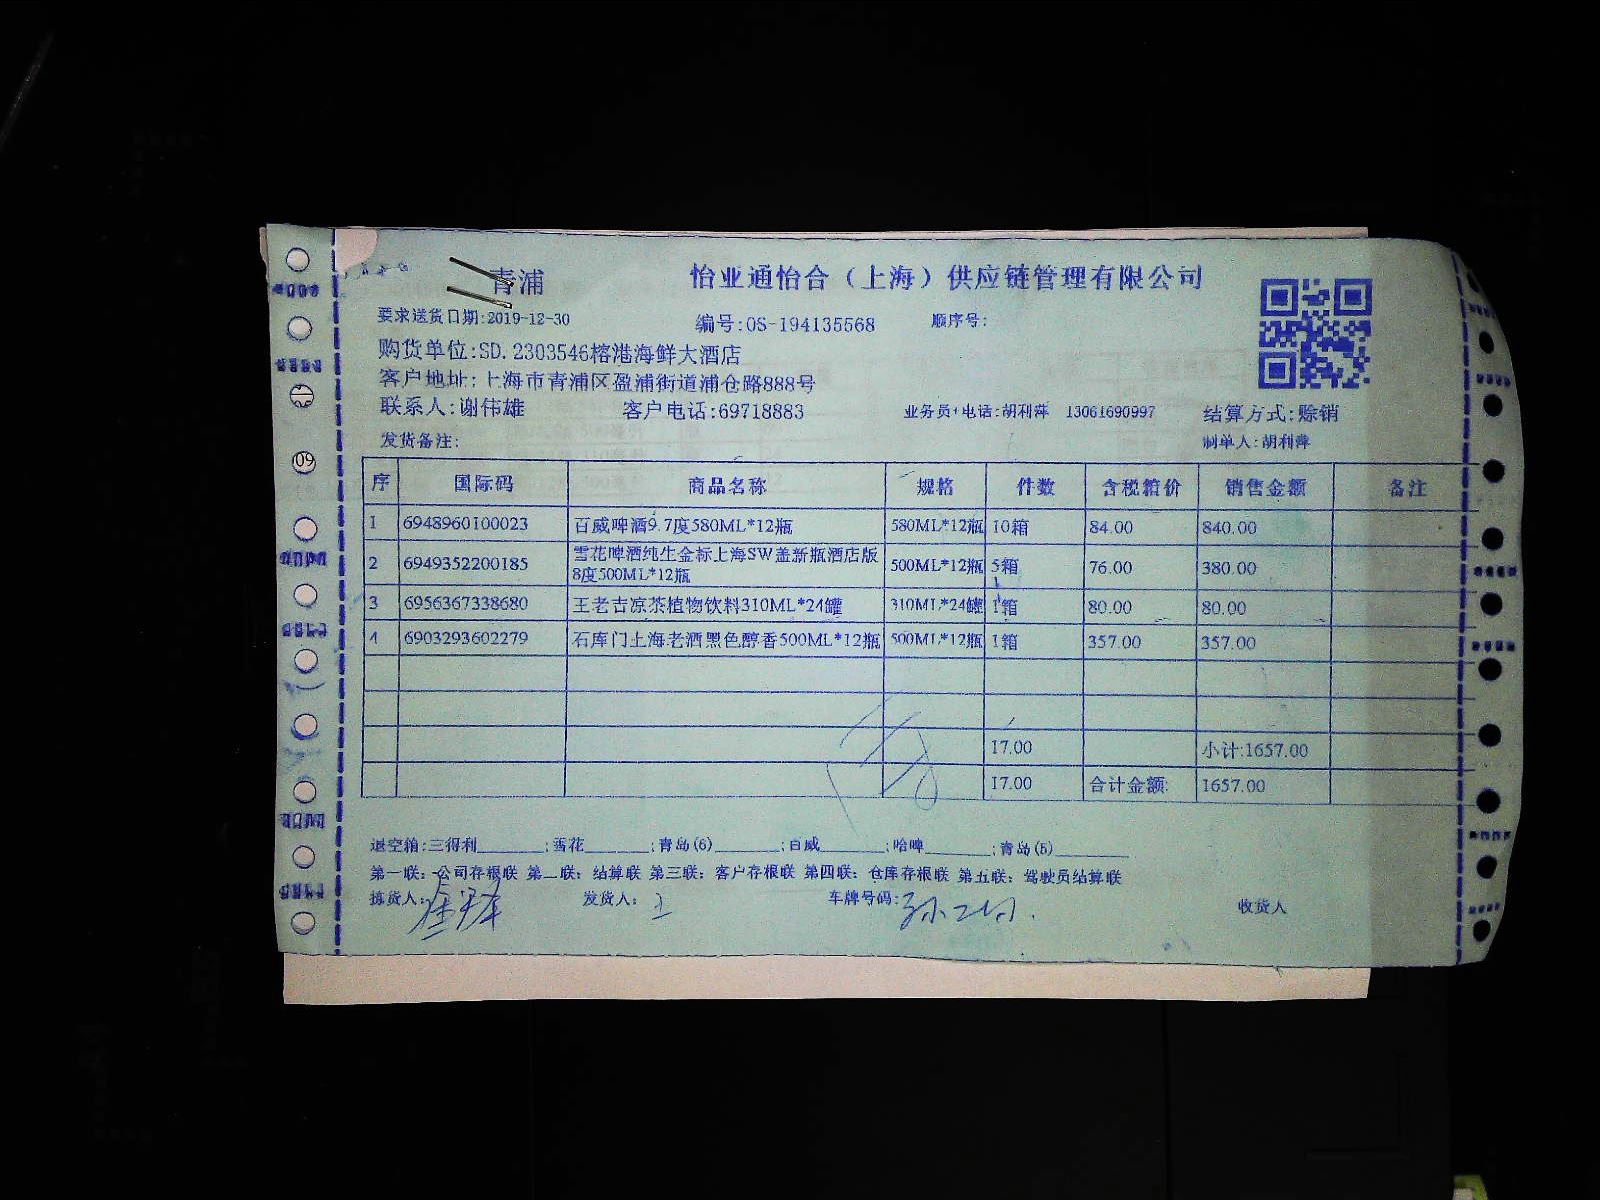 青浦 怡亚通怡合（上海）供应链管理有限公司
要求送货日期:2019-12-30 编号:OS-194135568 顺序号:
购货单位:SD. 2303546榕港海鲜大酒店
客户地址: 上海市青浦区盈浦街道浦仓路888号
联系人:谢伟雄 客户电话:69718883 业务员+电话:胡利萍 13061690997 结算方式:赊销
发货备注: 制单人:胡利萍
序 国际码 商品名称 规格 件数 含税箱价 销售金额 备注
1 6948960100023 百威啤酒9.7度580ML*12瓶 580ML*12瓶 10箱 84.00 840.00
2 6949352200185 雪花啤酒纯生金标上海SW盖新瓶酒店版8度500ML*12瓶 500ML*12瓶 5箱 76.00 380.00
3 6956367338680 王老吉凉茶植物饮料310ML*24罐 310ML*24罐 1箱 80.00 80.00
4 6903293602279 石库门上海老酒黑色醇香500ML*12瓶 500ML*12瓶 1箱 357.00 357.00
17.00 小计:1657.00
17.00 合计金额: 1657.00
退空箱:三得利______;雪花______;青岛(6)______;百威______;哈啤______;青岛(5)______
第一联：公司存根联 第二联：结算联 第三联：客户存根联 第四联：仓库存根联 第五联：驾驶员结算联
拣货人: 发货人: 车牌号码: 收货人